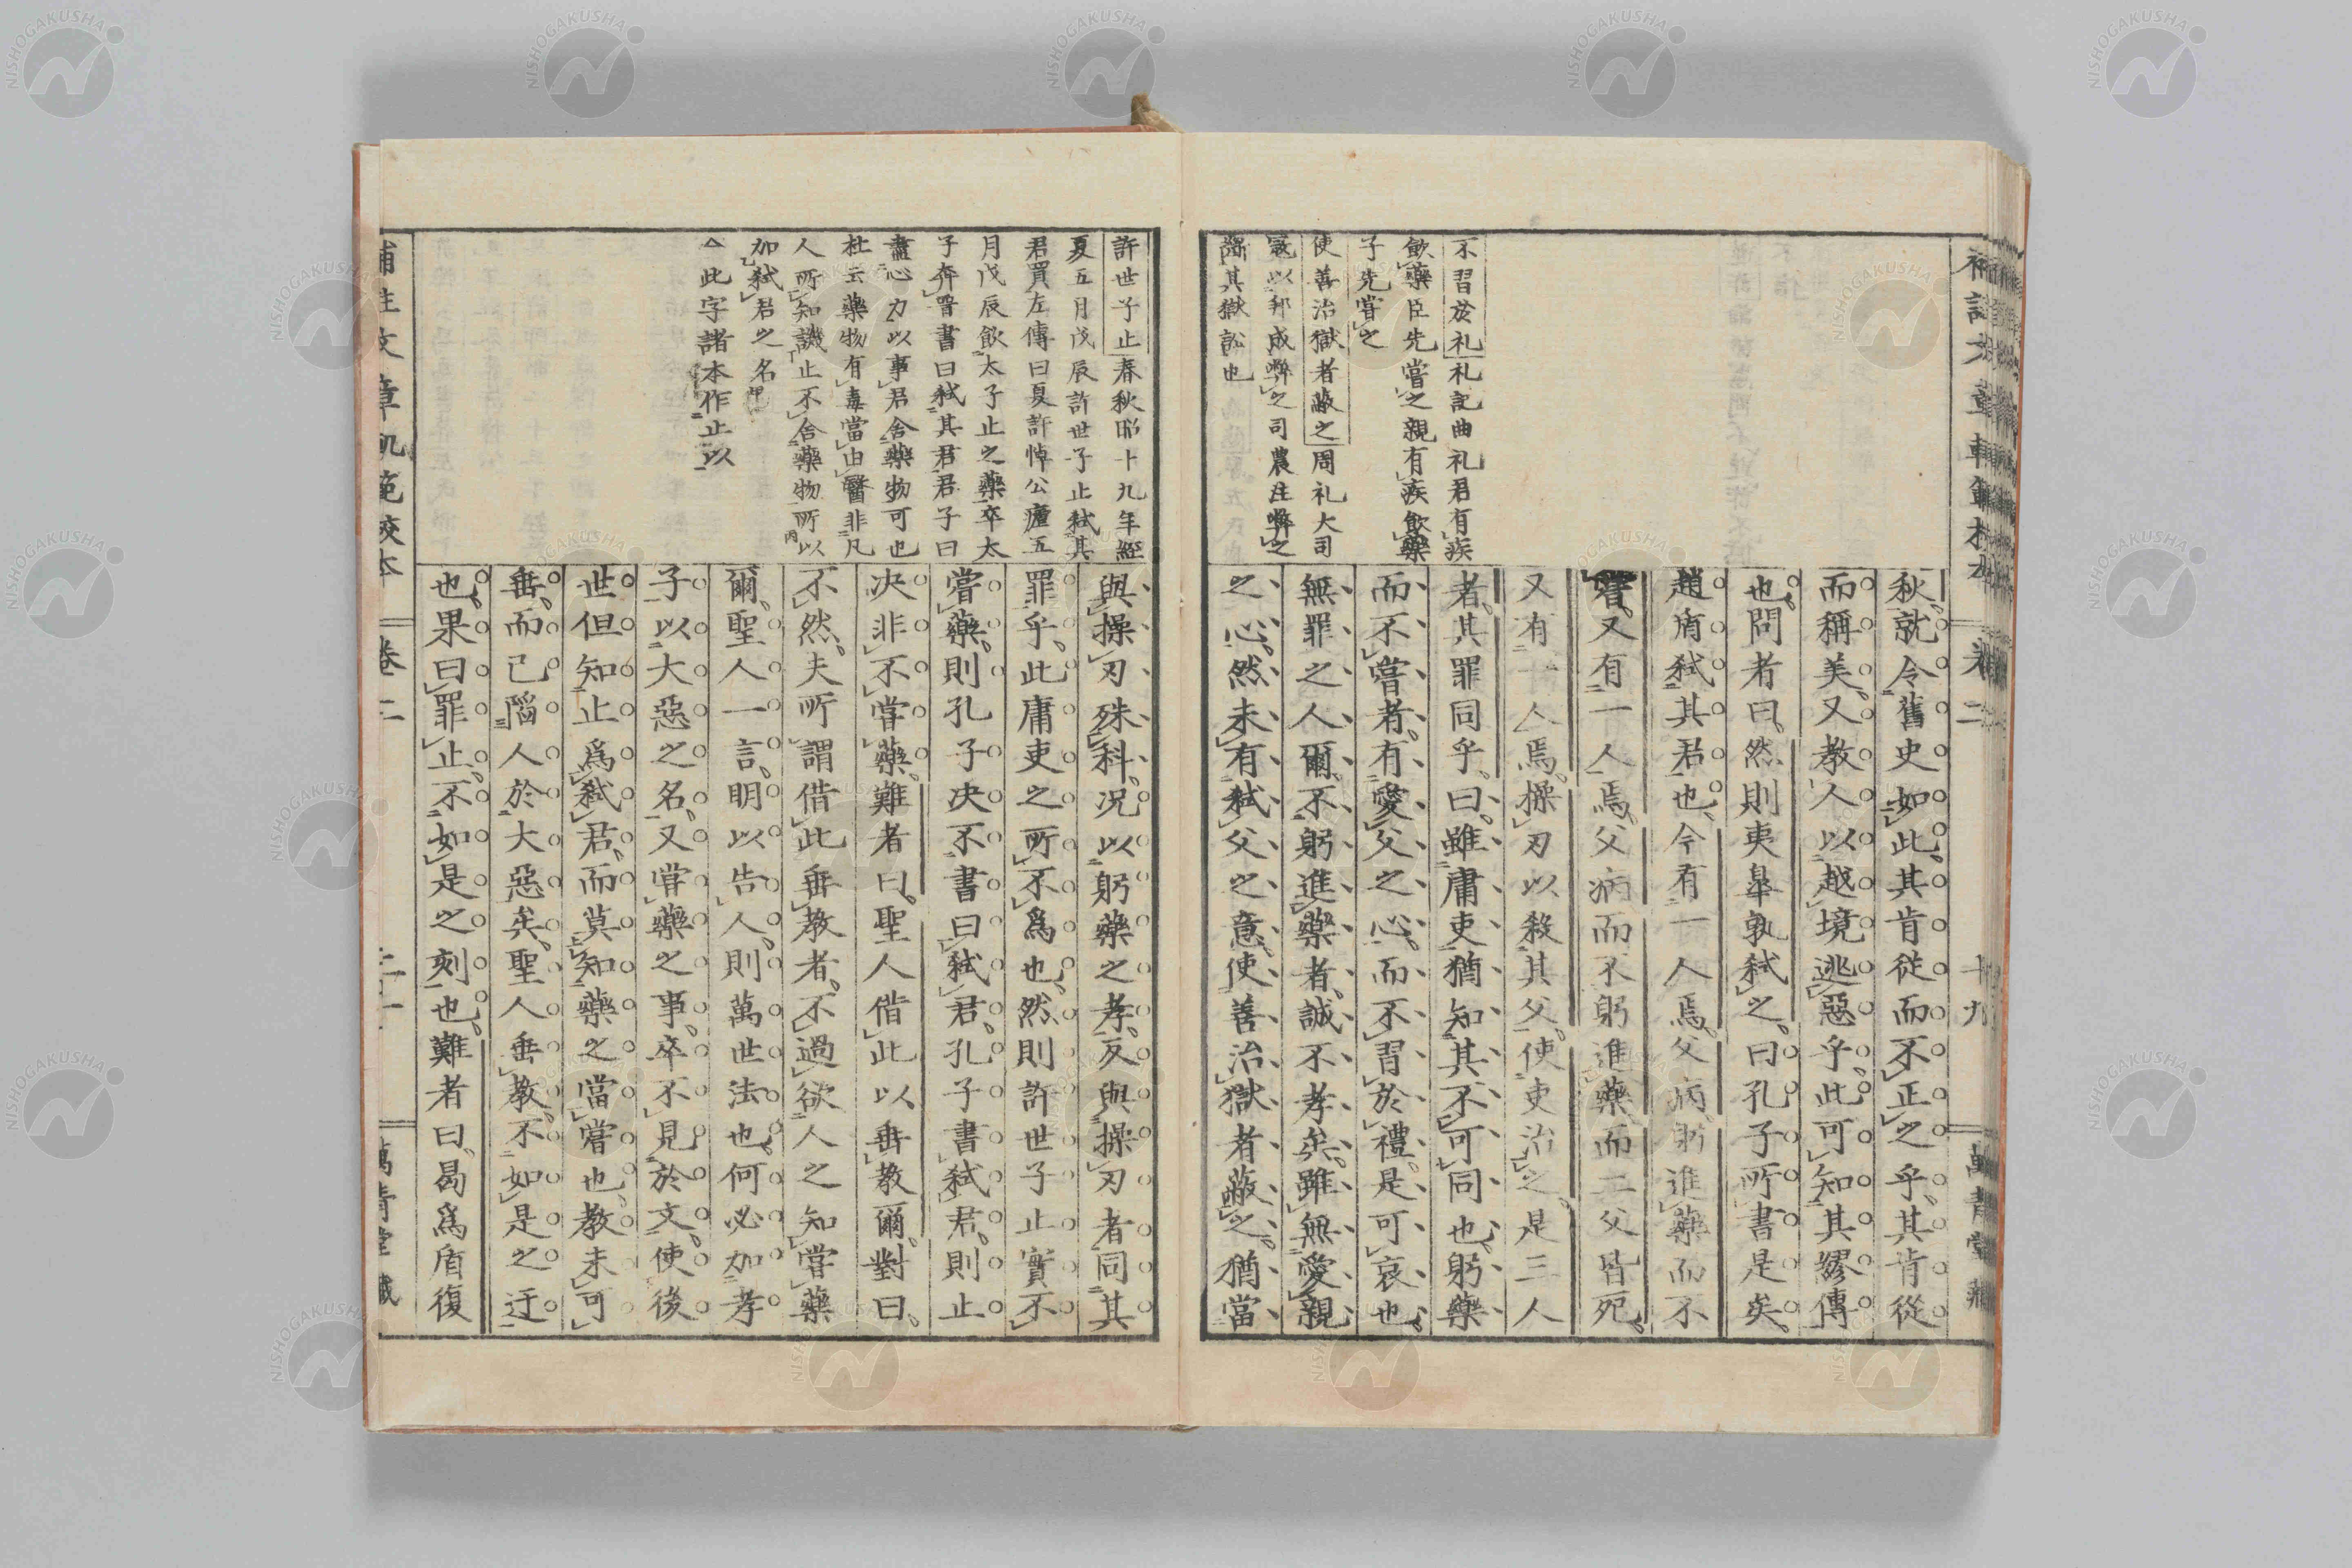 補註文章軌範校本
卷二
十九
萬青堂藏
不習於礼礼記曲礼君有疾
飲藥臣先嘗之親有疾飲藥
子先嘗之
使善治獄者蔽之周礼大司
寇以邦成弊之司農注弊之
斷其獄訟也
秋就令舊史如此其肯從而不正之乎其肯從
而稱美又教人以越境逃惡乎此可知其繆傳
也問者曰然則夷皐孰弒之曰孔子所書是矣
趙盾弒其君也今有一人焉父病躬進藥而不
嘗又有一人焉父病而不躬進藥而二父皆死
又有一人焉操刃以殺其父使吏治之是三人
者其罪同乎曰雖庸吏猶知其不可同也躬藥
而不嘗者有愛父之心而不習於禮是可哀也
無罪之人爾不躬進藥者誠不孝矣雖無愛親
之心然未有弒父之意使善治獄者蔽之猶當
許世子止春秋昭十九年經
夏五月戊辰許世子止弒其
君買左傳曰夏許悼公瘧五
月戊辰飲太子止之藥卒太
子奔晉書曰弒其君君子曰
盡心力以事君舍藥物可也
杜云藥物有毒當由醫非凡
人所知譏止不舍藥物所以
加弒君之名
△此字諸本作止以
與操刃殊科况以躬藥之孝反與操刃者同其
罪乎此庸吏之所不爲也然則許世子止實不
嘗藥則孔子决不書曰弒君孔子書弒君則止
决非不嘗藥難者曰聖人借此以垂教爾對曰
不然夫所謂借此垂教者不過欲人之知嘗藥
爾聖人一言明以告人則萬世法也何必加孝
子以大惡之名又嘗藥之事卒不見於文使後
世但知止爲弒君而莫知藥之當嘗也教未可
垂而已陷人於大惡矣聖人垂教不如是之迂
也果曰罪止不如是之刻也難者曰曷爲盾復
補註文章軌範校本
卷二
萬青堂藏
NISHOGAKUSHA